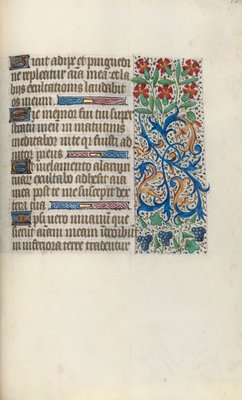 Sicut adipe et pinguedi
ne repleatur aīa mea et la
biis exultationis laudabit
os meum
Si memor fui tui super
stratū meū in matutinis
meditabor in te qr fuisti ad
iutor meus
Et in velamento alarum
tuarū exultabo adhesit aīa
mea post te me suscepit dex
tera tua
Ipsi vero in vanū que
sierūt aīam meam introibūt
in inferiora terre tradentur